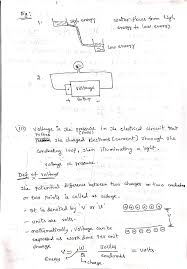 Ex:
1. high energy
water flows from high
energy to low energy
low energy
2.
voltage
+ -
(iii) Voltage is the pressure in the electrical circuit that
the charged electrons (current) through the
conducting loop, then illuminating a light.
voltage = pressure
Def of voltage
The potential difference between two charges or two nodes
or two points is called as voltage.
- It is denoted by 'V' or
- units are volts -
- Mathematically, Voltage can be
expressed as work done per unit
charge
Energy
= volts